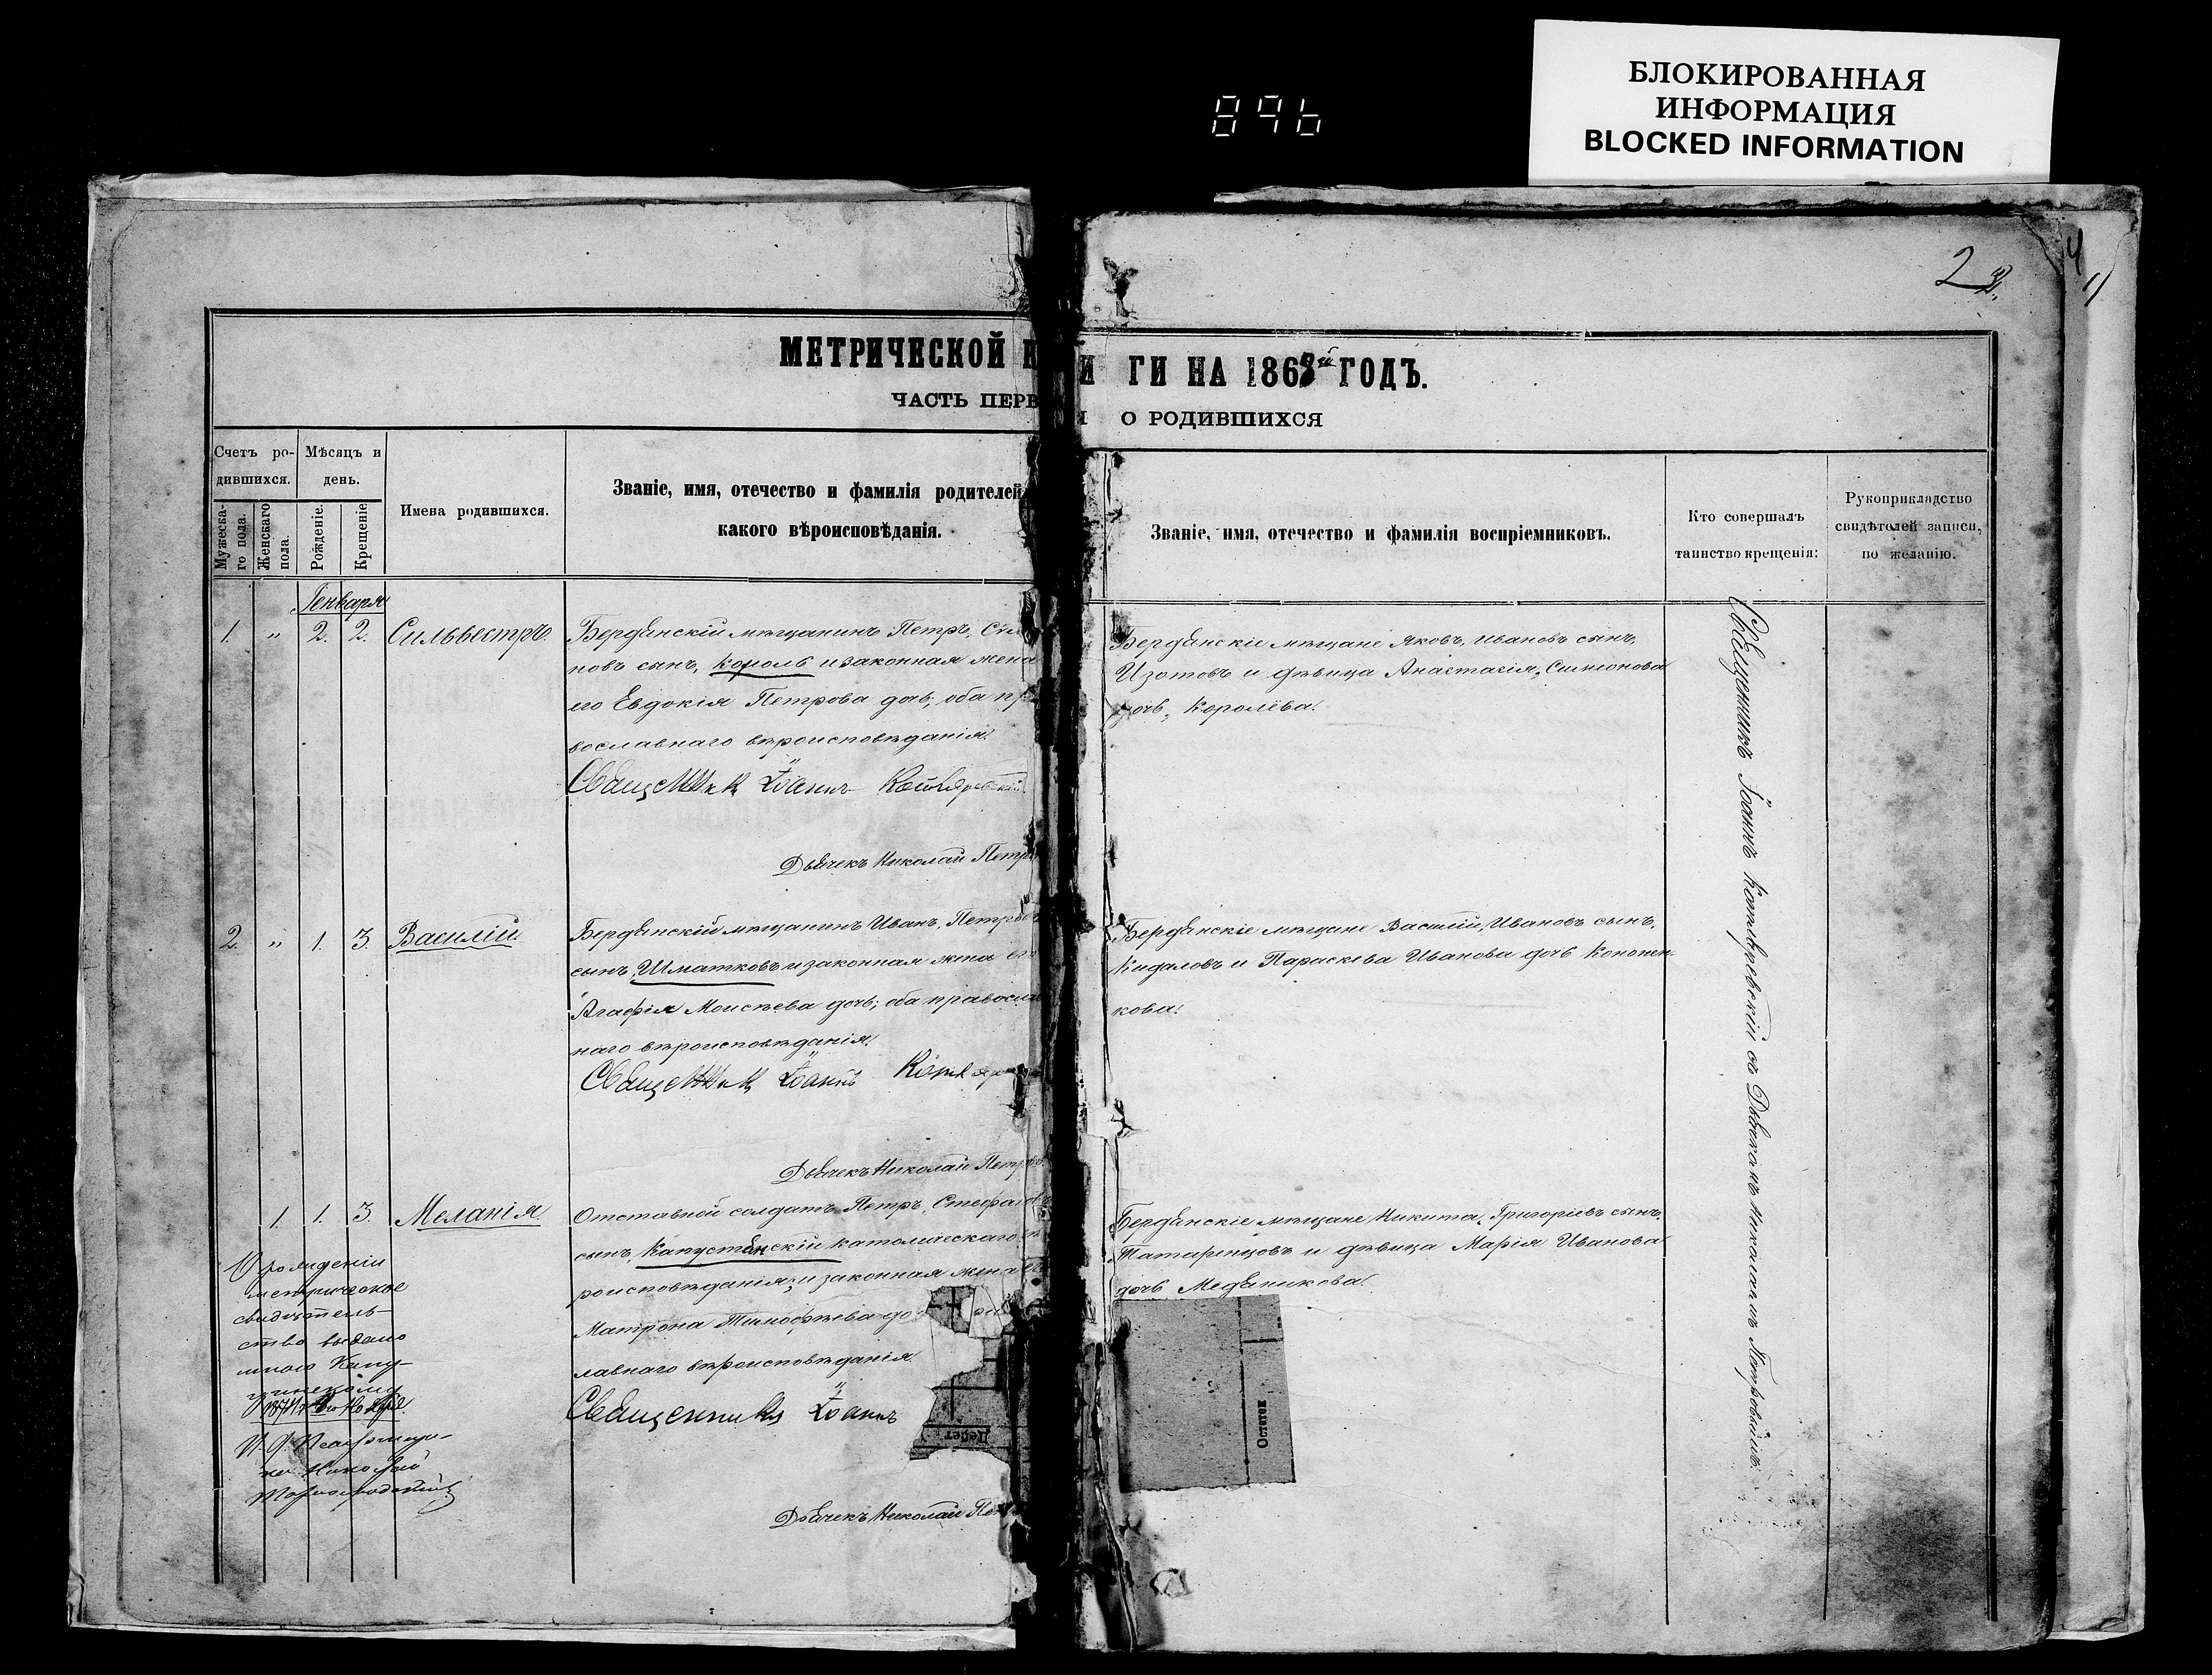 БЛОКИРОВАННАЯ
ИНФОРМАЦИЯ
BLOCKED INFORMATION
896
2
4
МЕТРИЧЕСКОЙ К И ГИ НА 1868й ГОДЪ.
ЧАСТЬ ПЕРВ Я О РОДИВШИХСЯ
Счетъ ро-
дившихся.
Мужеска-
го пола.
Женскаго
пола.
Мѣсяцъ и
день.
Рожденіе.
Крещеніе
Имена родившихся.
Званіе, имя, отечество и фамилія родителей,
какого вѣроисповѣданія.
Званіе, имя, отечество и фамилія воспріемниковъ.
Кто совершалъ
таинство крещенія:
Рукоприкладство
свидѣтелей записи,
по желанію.
Генваря
1. " 2. 2. Сильвестръ.
Бердянскій мѣщанинъ Петръ, Сим
новъ сынъ, Король и законная жена
его Евдокія Петрова дочь; оба пра
вославнаго вѣроисповѣданія.
Священникъ Іоаннъ Котляревскій
Дьячекъ Николай Петр
Бердянскіе мѣщане Яковъ, Ивановъ сынъ,
Изотовъ и дѣвица Анастасія, Симіонова
дочь, Королева.
2. " 1. 3. Василій.
Бердянскій мѣщанинъ Иванъ, Петровъ
сынъ, Шматковъ и законная жена его
Агафія Моисѣева дочь; оба правосла
наго вѣроисповѣданія.
Священникъ Іоаннъ Котляр
Дьячекъ Николай Петров
Бердянскіе мѣщане Василій, Ивановъ сынъ,
Кидаловъ и Параскева Иванова дочь Кононен-
кова.
1. 1. 3. Меланія.
Отставной солдатъ Петръ, Стефановъ
сынъ, Капустянскій католическаго вѣ
роисповѣданія; и законная жена его
Матрона Тимофѣева до
лавнаго вѣроисповѣданія.
Священникъ Іоаннъ
Дьячекъ Николай Пет
Бердянскіе мѣщане Никита, Григоріевъ сынъ,
Татаренцовъ и дѣвица Марія Иванова
дочь Медяникова.
О рожденіи
метрическое
свидѣтель-
ство выдано
Николай
Священникъ Іоаннъ Котляревскій съ Дьячкомъ Николаемъ Петровымъ.
Дебет
Остаток